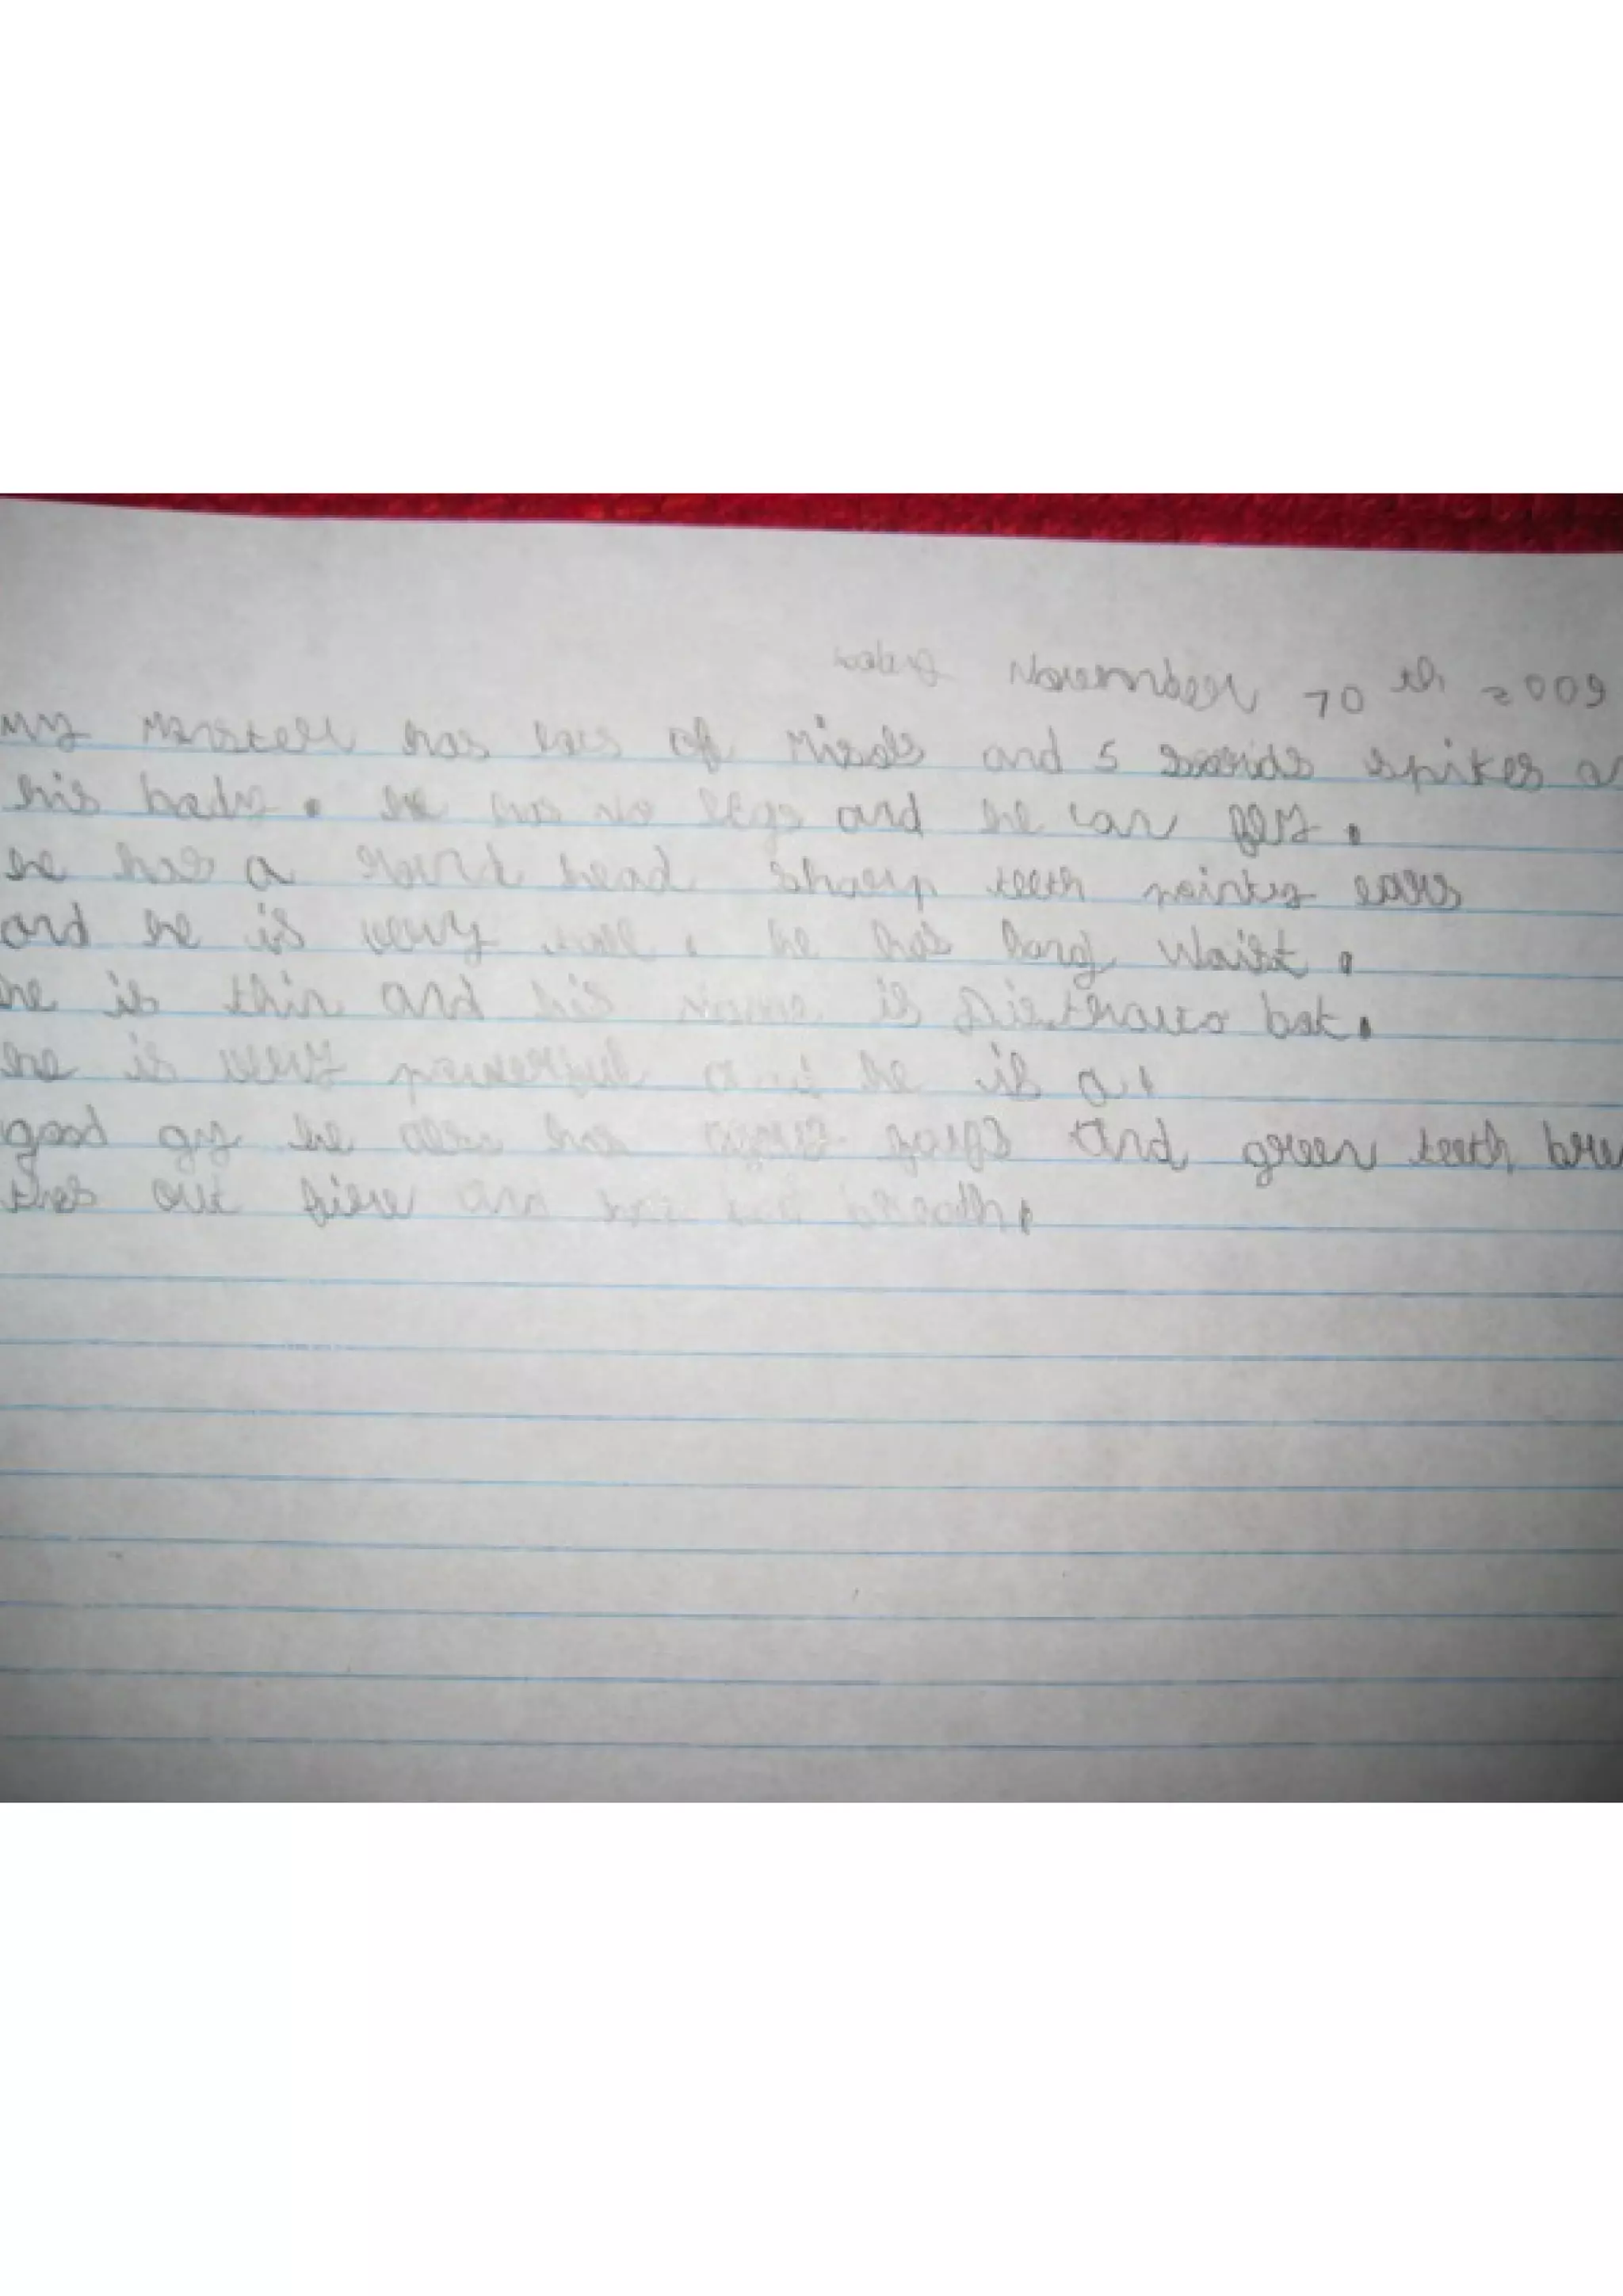 November 10th 2009
my monster has lots of misols and 5 swords spikes on
his body. he has no legs and he can fly.
he has a round head sharp teeth pointy ears
and he is very tall. he has long waist.
he is thin and his name is bat.
he is very powerful he is a
good gy he also has and green teeth bre
thes out fiere and bad breath.